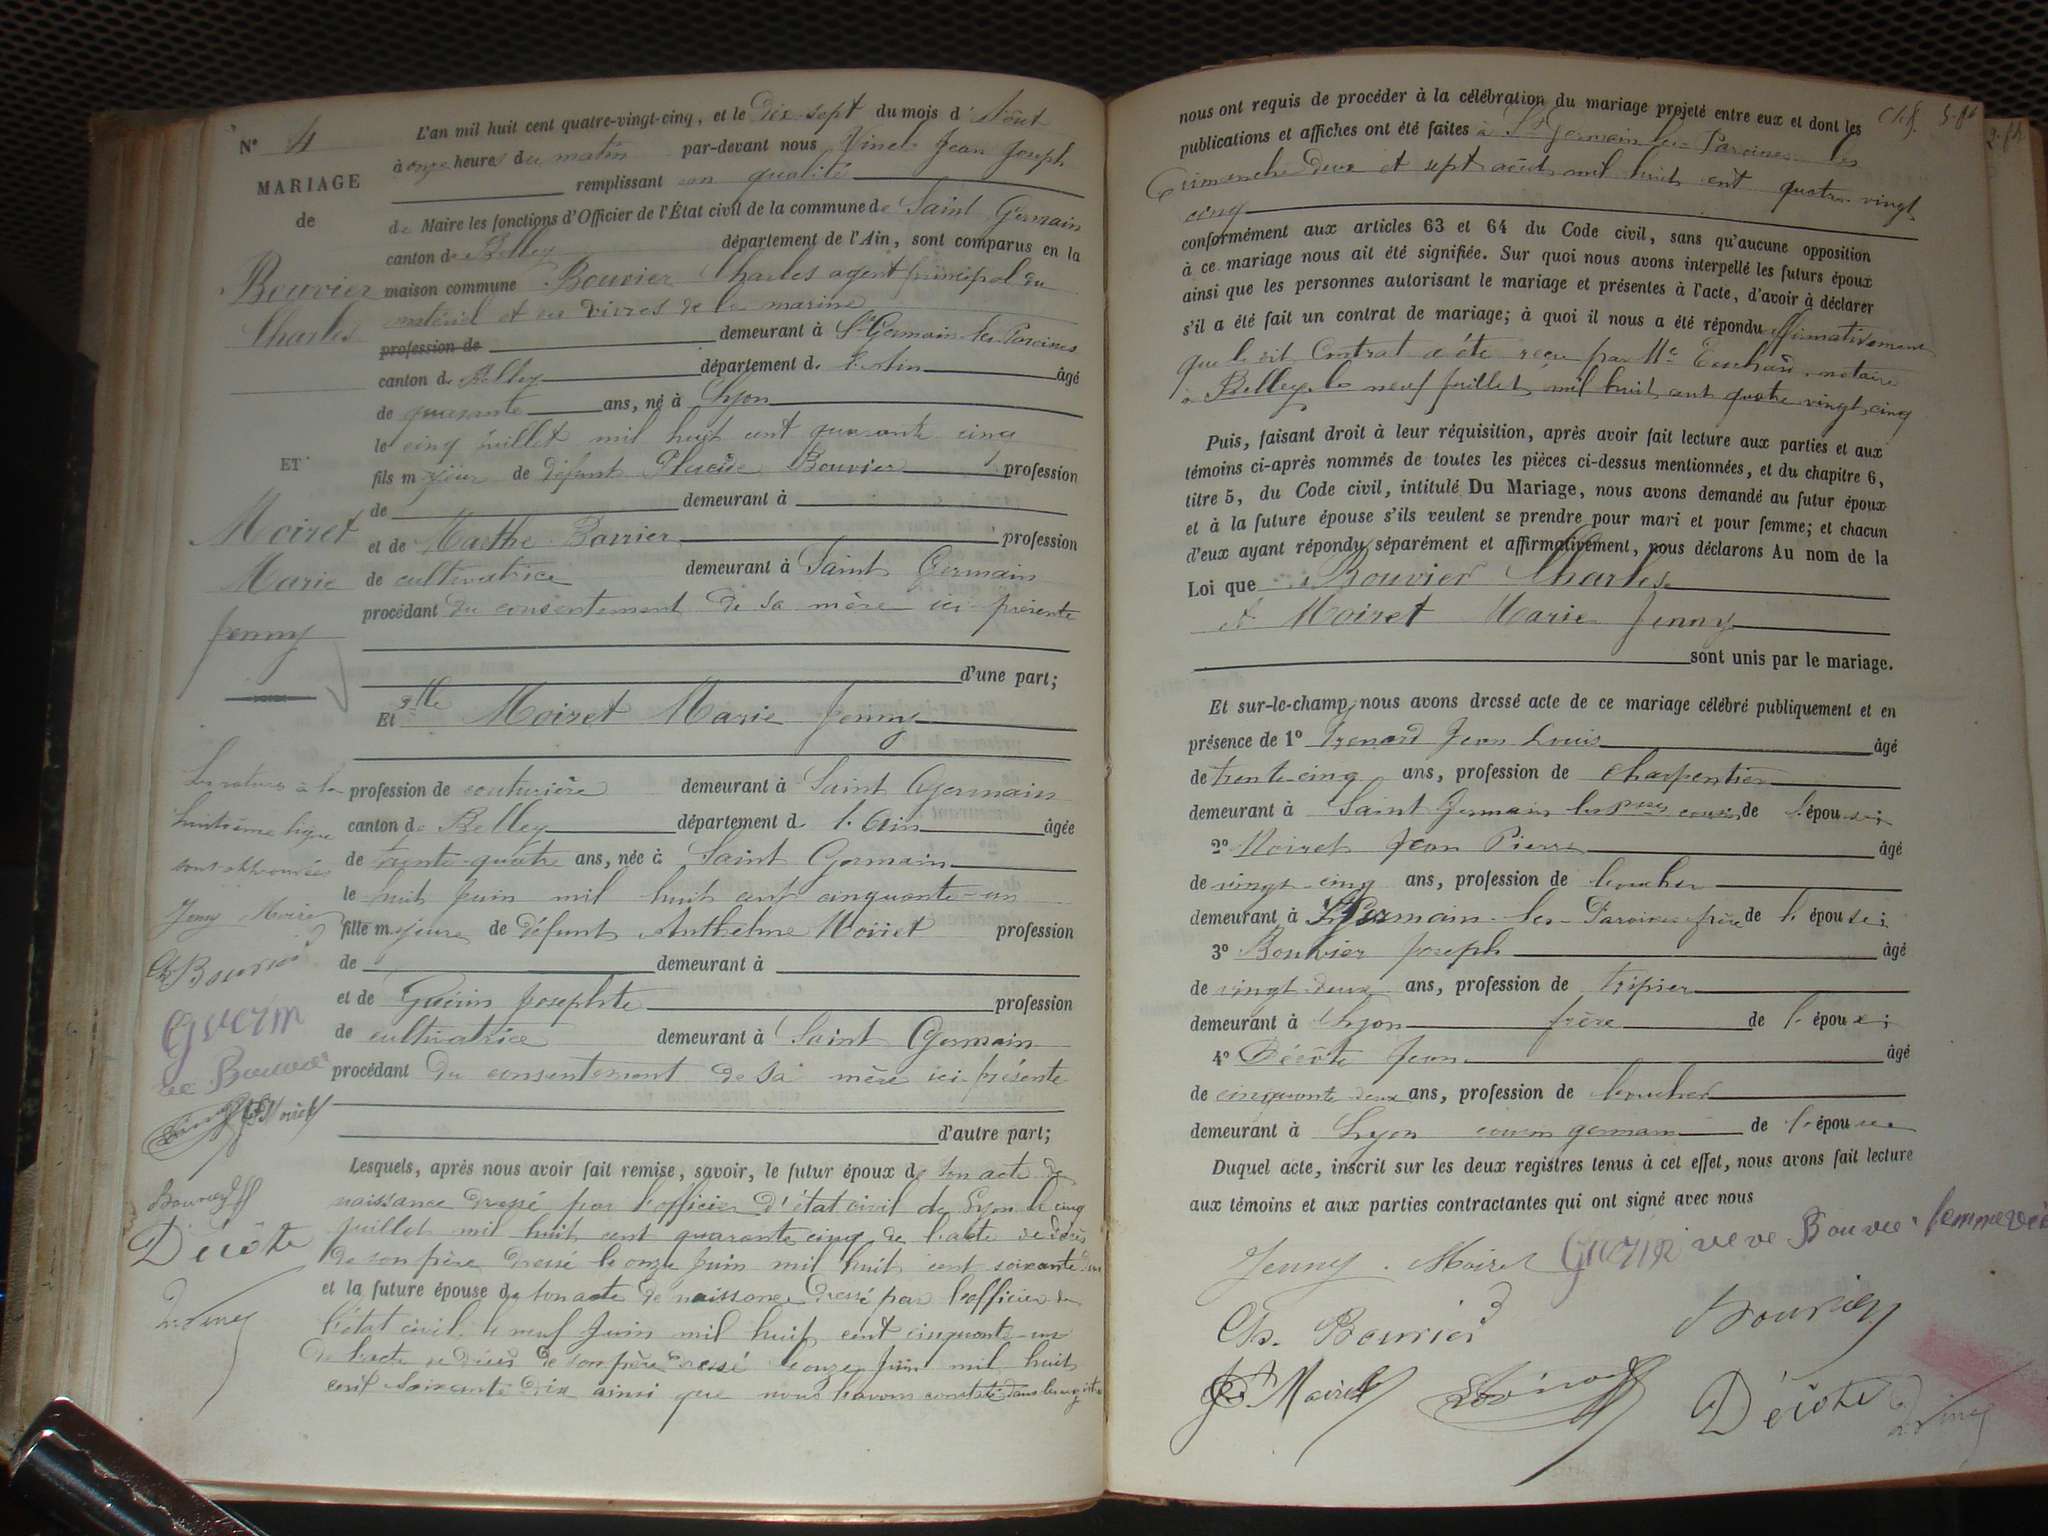 N° 4
MARIAGE
de
Bouvier
Charles
ET
Moiret
Marie
Jenny
la rature à la
huitième ligne
sont approuvées
Jenny Moiret
Ch. Bouvier
Guerin
ve Bouvier
Bouvier
Décôte
L'an mil huit cent quatre-vingt-cinq, et le dix sept du mois d'Août
à onze heures du matin par-devant nous Vinel Jean Joseph
remplissant en qualité
de Maire les fonctions d'Officier de l'État civil de la commune de Saint Germain
canton de Belley département de l'Ain, sont comparus en la
maison commune Bouvier Charles agent principal du
matériel et des vivres de la marine
profession de demeurant à St Germain les Paroisses
canton de Belley département de l'Ain âgé
de quarante ans, né à Lyon
le cinq juillet mil huit cent quarante cinq
fils majeur de défunt Bouvier profession
de demeurant à
et de Marthe Barrier profession
de cultivatrice demeurant à Saint Germain
procédant du consentement de sa mère ici présente
d'une part;
Et Mlle Moiret Marie Jenny
profession de couturière demeurant à Saint Germain
canton de Belley département de l'Ain âgée
de trente-quatre ans, née à Saint Germain
le huit juin mil huit cent cinquante-un
fille majeure de défunt Anthelme Moiret profession
de demeurant à
et de Guérin Josephte profession
de cultivatrice demeurant à Saint Germain
procédant du consentement de sa mère ici présente
d'autre part;
Lesquels, après nous avoir fait remise, savoir, le futur époux de son acte de
naissance dressé par l'officier d'état civil de Lyon le cinq
juillet mil huit cent quarante cinq de l'acte de décès
de son père dressé le onze juin mil huit cent soixante
et la future épouse de son acte de naissance dressé par l'officier de
l'état civil le neuf juin mil huit cent cinquante-un
de l'acte de décès de son père dressé le onze juin mil huit
cent soixante dix ainsi que nous l'avons constaté dans les registres
nous ont requis de procéder à la célébration du mariage projeté entre eux et dont les
publications et affiches ont été faites à St Germain les Paroisses les
dimanche deux et sept août mil huit cent quatre vingt
cinq
conformément aux articles 63 et 64 du Code civil, sans qu'aucune opposition
à ce mariage nous ait été signifiée. Sur quoi nous avons interpellé les futurs époux
ainsi que les personnes autorisant le mariage et présentes à l'acte, d'avoir à déclarer
s'il a été fait un contrat de mariage; à quoi il nous a été répondu affirmativement
que le dit Contrat a été reçu par Me notaire
à Belley, le neuf juillet mil huit cent quatre vingt cinq
Puis, faisant droit à leur réquisition, après avoir fait lecture aux parties et aux
témoins ci-après nommés de toutes les pièces ci-dessus mentionnées, et du chapitre 6,
titre 5, du Code civil, intitulé Du Mariage, nous avons demandé au futur époux
et à la future épouse s'ils veulent se prendre pour mari et pour femme; et chacun
d'eux ayant répondu séparément et affirmativement, nous déclarons Au nom de la
Loi que Bouvier Charles
et Moiret Marie Jenny
sont unis par le mariage.
Et sur-le-champ nous avons dressé acte de ce mariage célébré publiquement et en
présence de 1° Trenard Jean Louis âgé
de trente-cinq ans, profession de charpentier
demeurant à Saint Germain les cousin de l'épouse;
2° Moiret Jean Pierre âgé
de vingt-cinq ans, profession de boucher
demeurant à St Germain-les-Paroisses frère de l'épouse;
3° Bouvier Joseph âgé
de vingt-deux ans, profession de tripier
demeurant à Lyon frère de l'époux;
4° Décôte Jean âgé
de cinquante deux ans, profession de boucher
demeurant à Lyon cousin germain de l'épouse
Duquel acte, inscrit sur les deux registres tenus à cet effet, nous avons fait lecture
aux témoins et aux parties contractantes qui ont signé avec nous
Jenny Moiret Guerin veve Bouvier
Ch. Bouvier Bouvier
Moiret Décôte